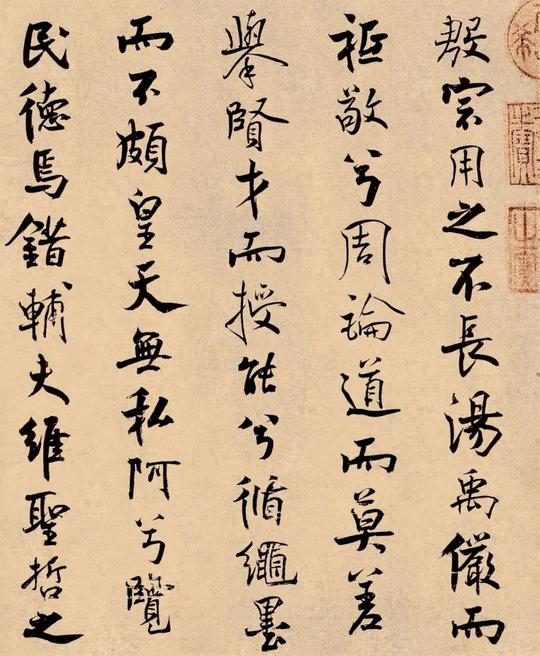 殷宗用之不長湯禹儼而
祗敬兮周論道而莫差
舉賢才而授能兮循繩墨
而不頗皇天無私阿兮覽
民德焉錯輔夫維聖哲之